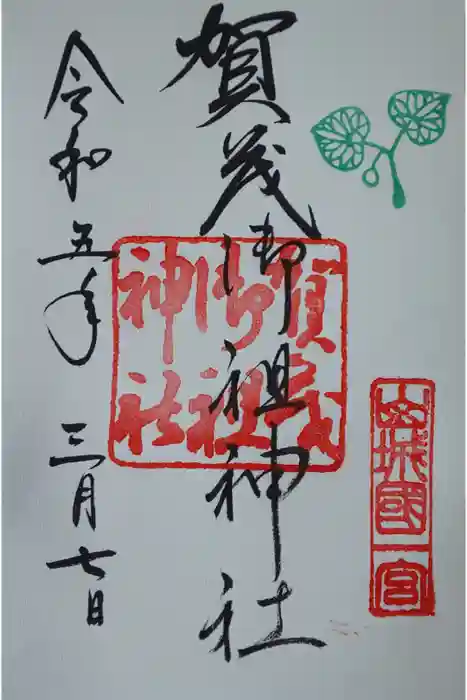 山城國一宮
賀茂御祖神社
賀茂
御祖
神社
令和五年 三月七日